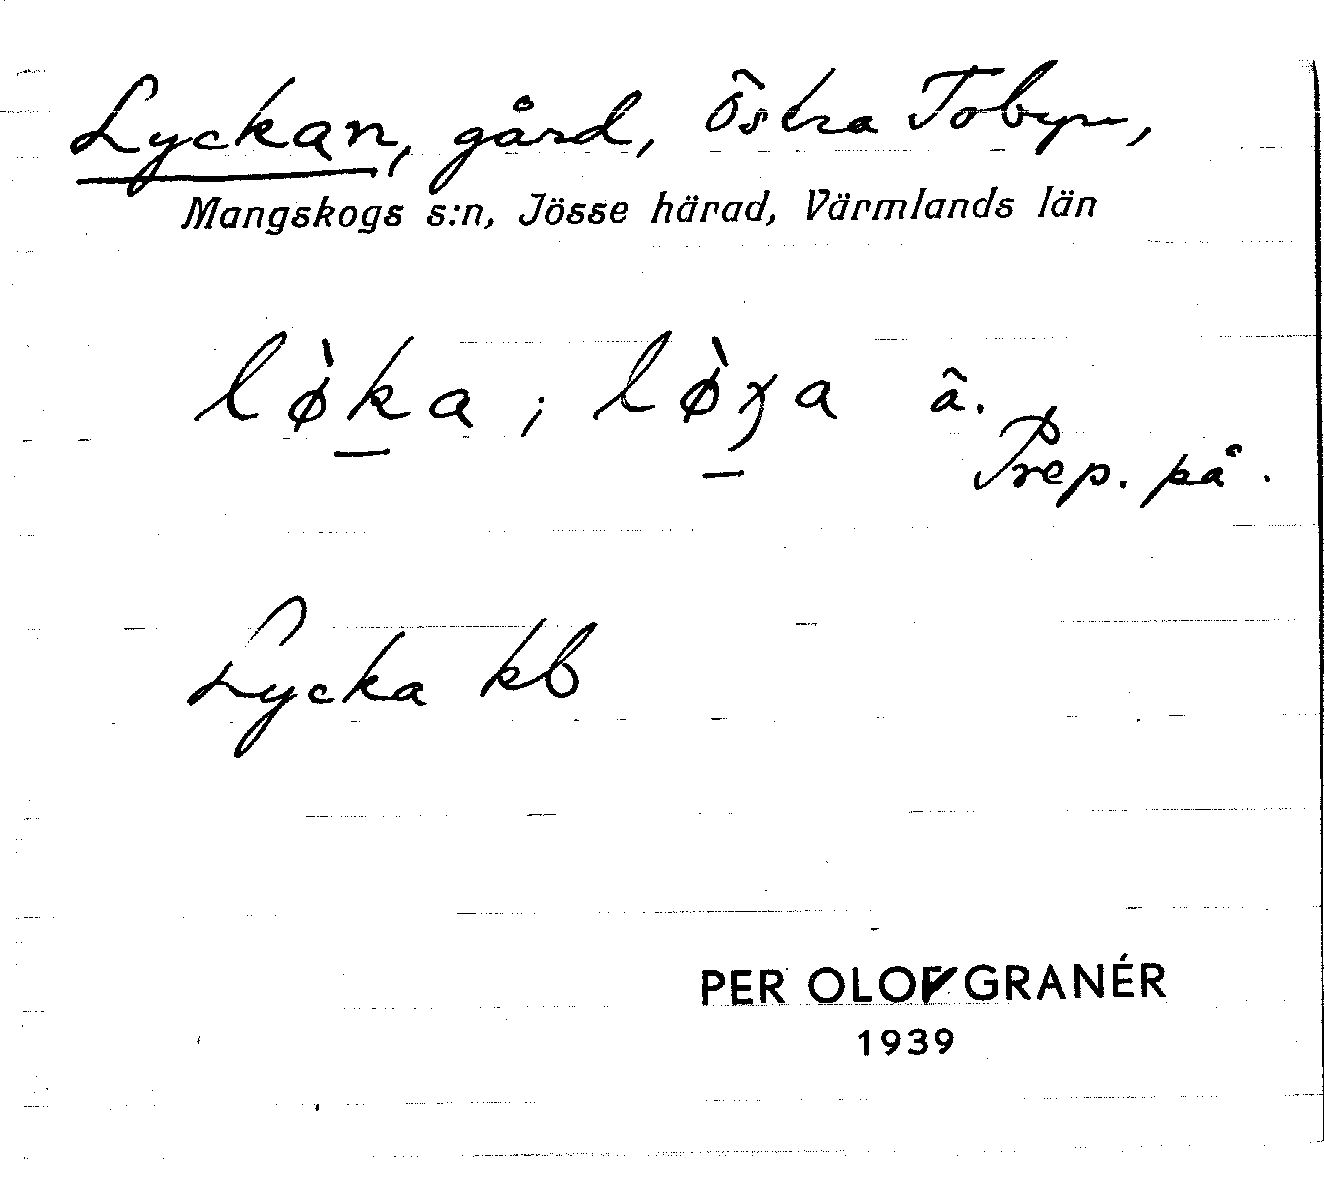 Lyckan, gård, Östra Tobyn,
Mangskogs s:n, Jösse härad, Värmlands län
lø̀ka; lø̀ɣa ä.
Prep. på.
Lycka kb
PER OLOF GRANÉR
1939